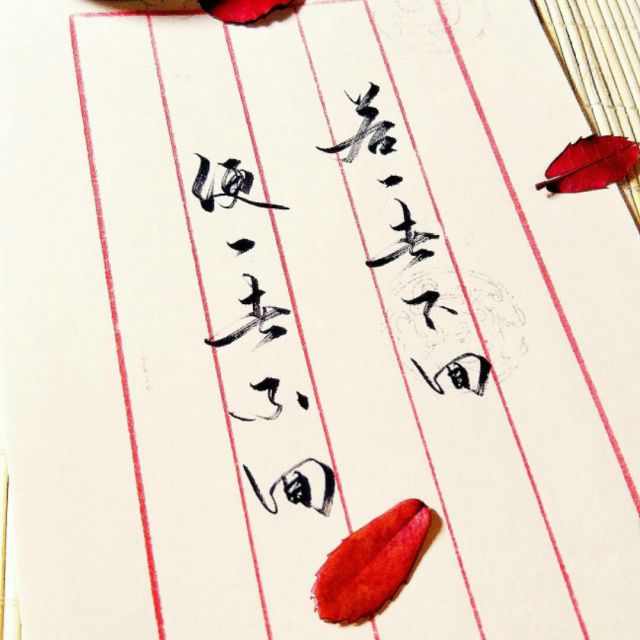 若一去不回
便一去不回